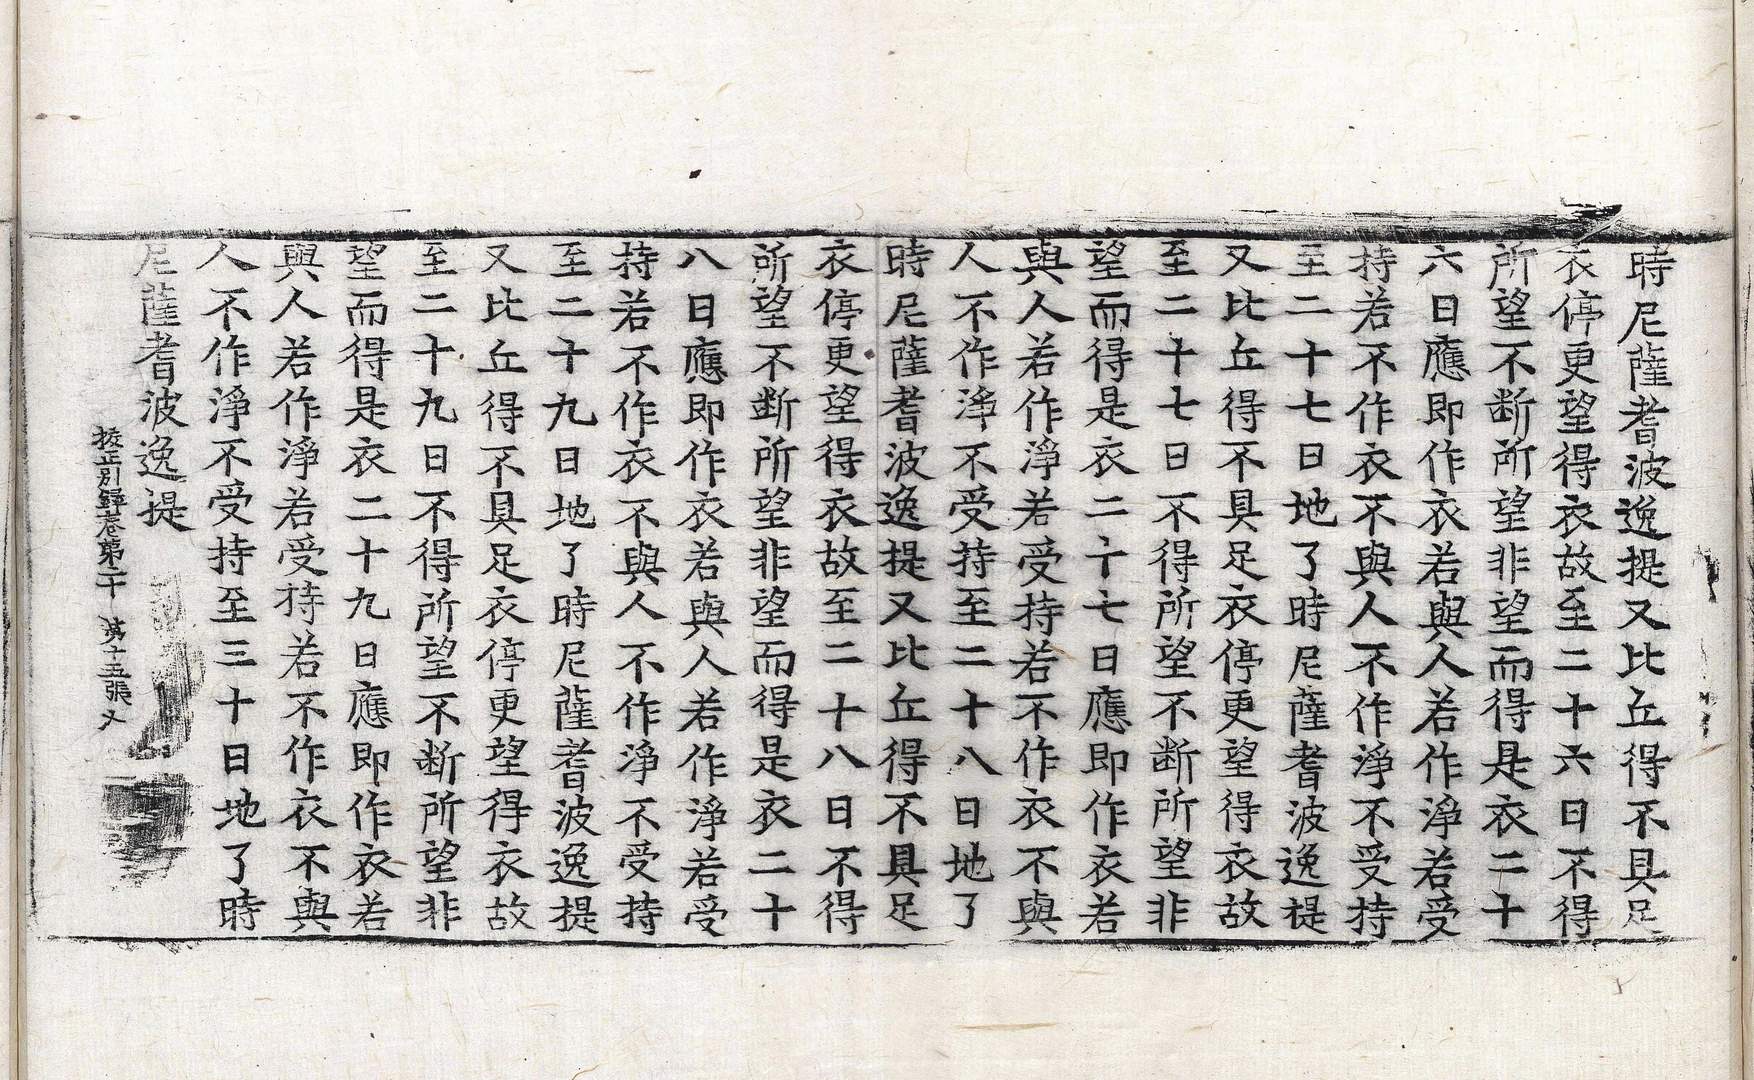 時尼薩耆波逸提又比丘得不具足
衣停更望得衣故至二十六日不得
所望不断所望非望而得是衣二十
六日應即作衣若與人若作淨若受
持若不作衣不與人不作淨不受持
至二十七日地了時尼薩耆波逸提
又比丘得不具足衣停更望得衣故
至二十七日不得所望不断所望非
望而得是衣二十七日應即作衣若
與人若作淨若受持若不作衣不與
人不作淨不受持至二十八日地了
時尼薩耆波逸提又比丘得不具足
衣停更望得衣故至二十八日不得
所望不断所望非望而得是衣二十
八日應即作衣若與人若作淨若受
持若不作衣不與人不作淨不受持
至二十九日地了時尼薩耆波逸提
又比丘得不具足衣停更望得衣故
至二十九日不得所望不断所望非
望而得是衣二十九日應即作衣若
與人若作淨若受持若不作衣不與
人不作淨不受持至三十日地了時
尼薩耆波逸提
校正別録卷第二十 第十五張